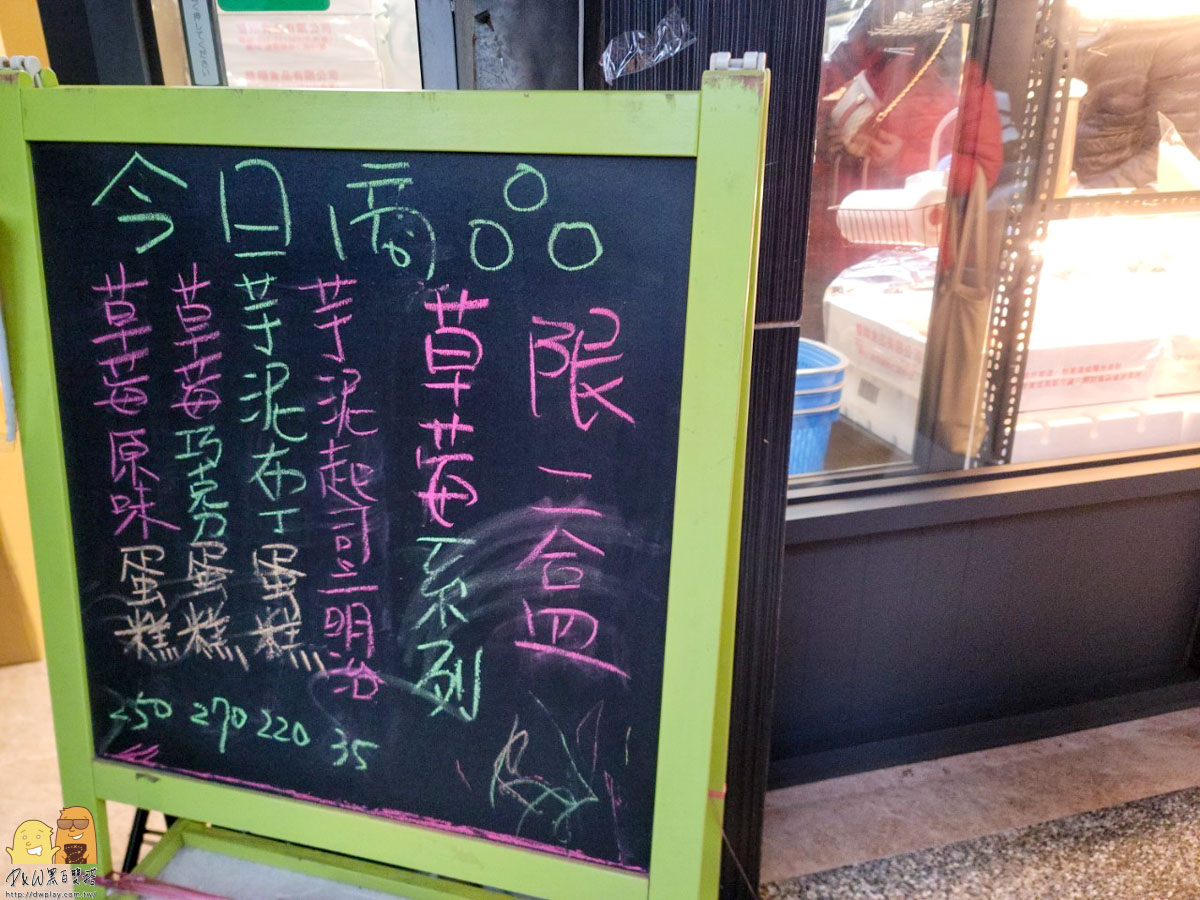 今日商品
限二盒
草莓系列
芋泥起司三明治 35
芋泥布丁蛋糕 220
草莓巧克力蛋糕 270
草莓原味蛋糕 250
食品有限公司
http://dwplay.com.tw/